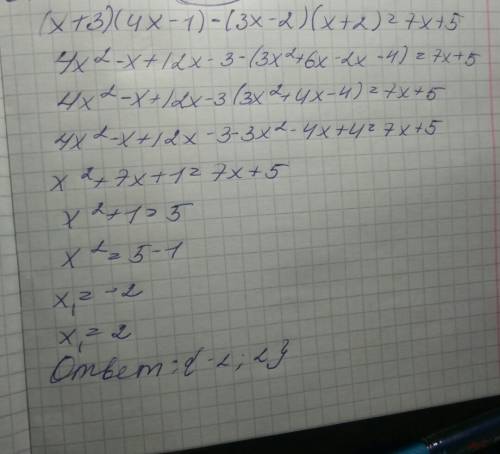 (x+3)(4x-1)-(3x-2)(x+2)=7x+5
4x²-x+12x-3-(3x²+6x-2x-4)=7x+5
4x²-x+12x-3(3x²+4x-4)=7x+5
4x²-x+12x-3-3x²-4x+4=7x+5
x²+7x+1=7x+5
x²+1=5
x²=5-1
x₁=-2
x₁=2
Ответ:{-2;2}